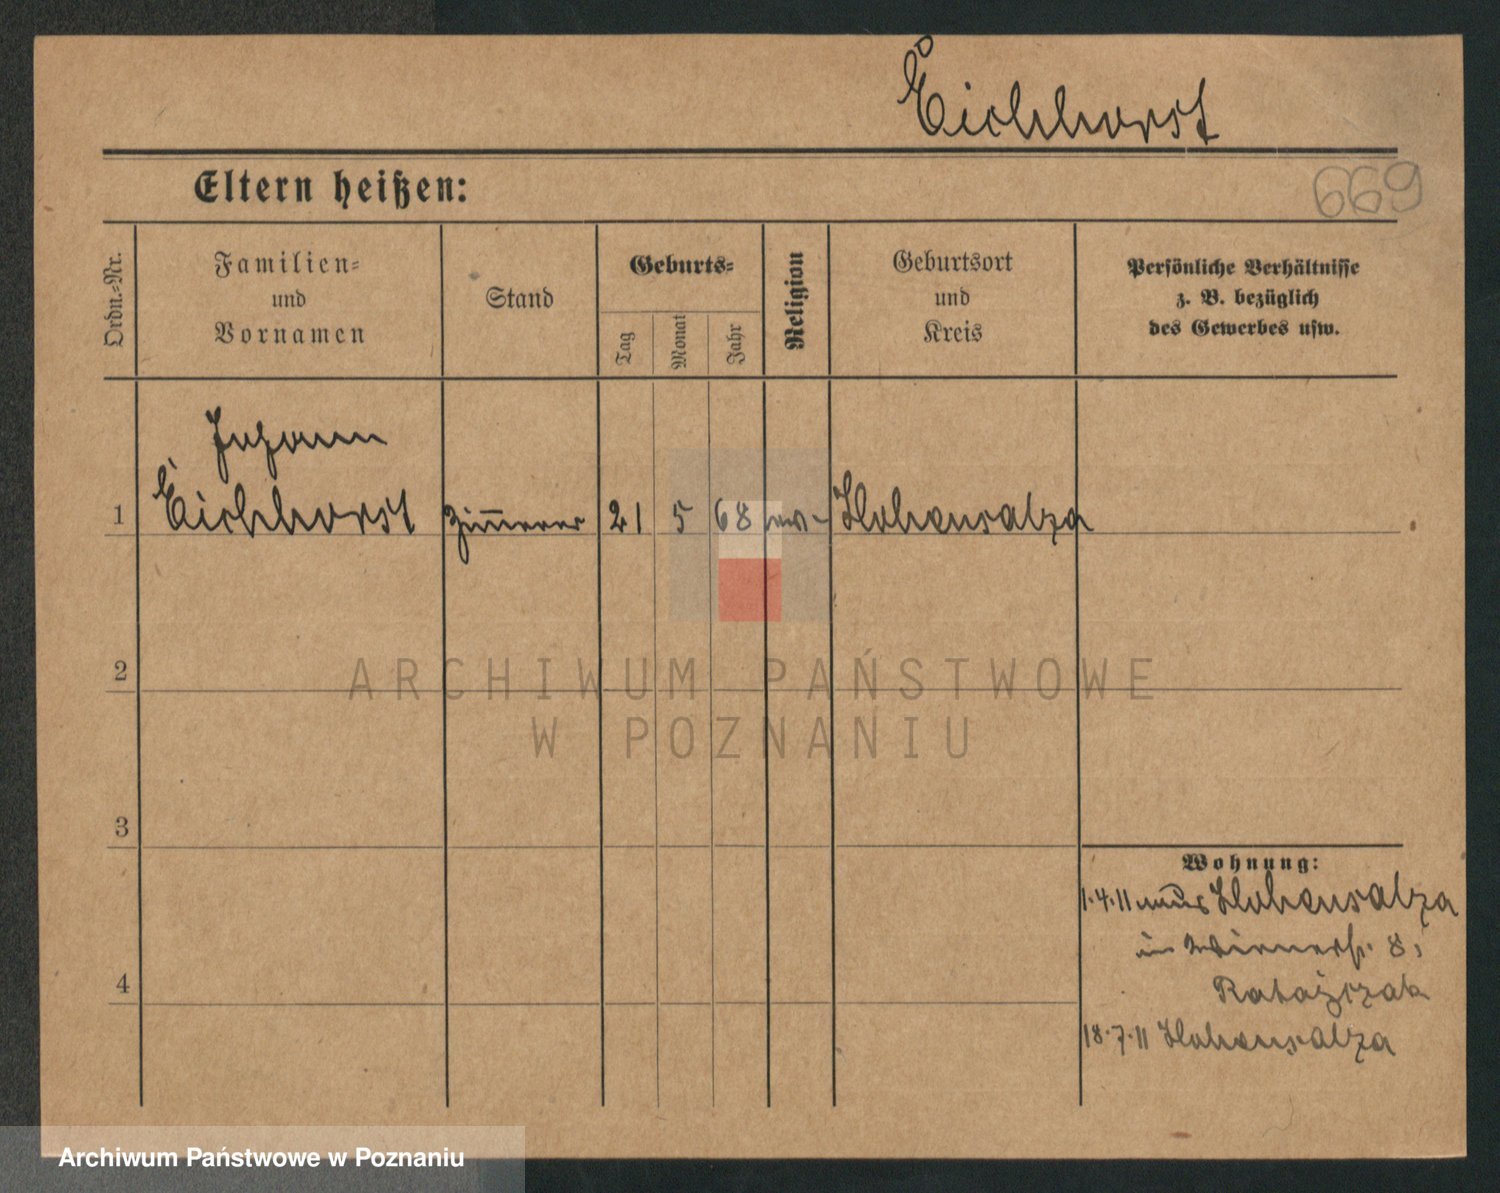 Eichhorst
Eltern heißen:
669
Ordn.=Nr.
Familien=
und
Vornamen
Stand
Geburts=
Tag
Monat
Jahr
Religion
Geburtsort
und
Kreis
Persönliche Verhältnisse
z. B. bezüglich
des Gewerbes usw.
Johann
1 Eichhorst Zim̅erer 21 5 68 ev. Hohensalza
2
3
4
Wohnung:
1.4.11 aus Hohensalza
in 8,
Ratajczak
18.7.11 Hohensalza
ARCHIWUM PAŃSTWOWE
W POZNANIU
Archiwum Państwowe w Poznaniu